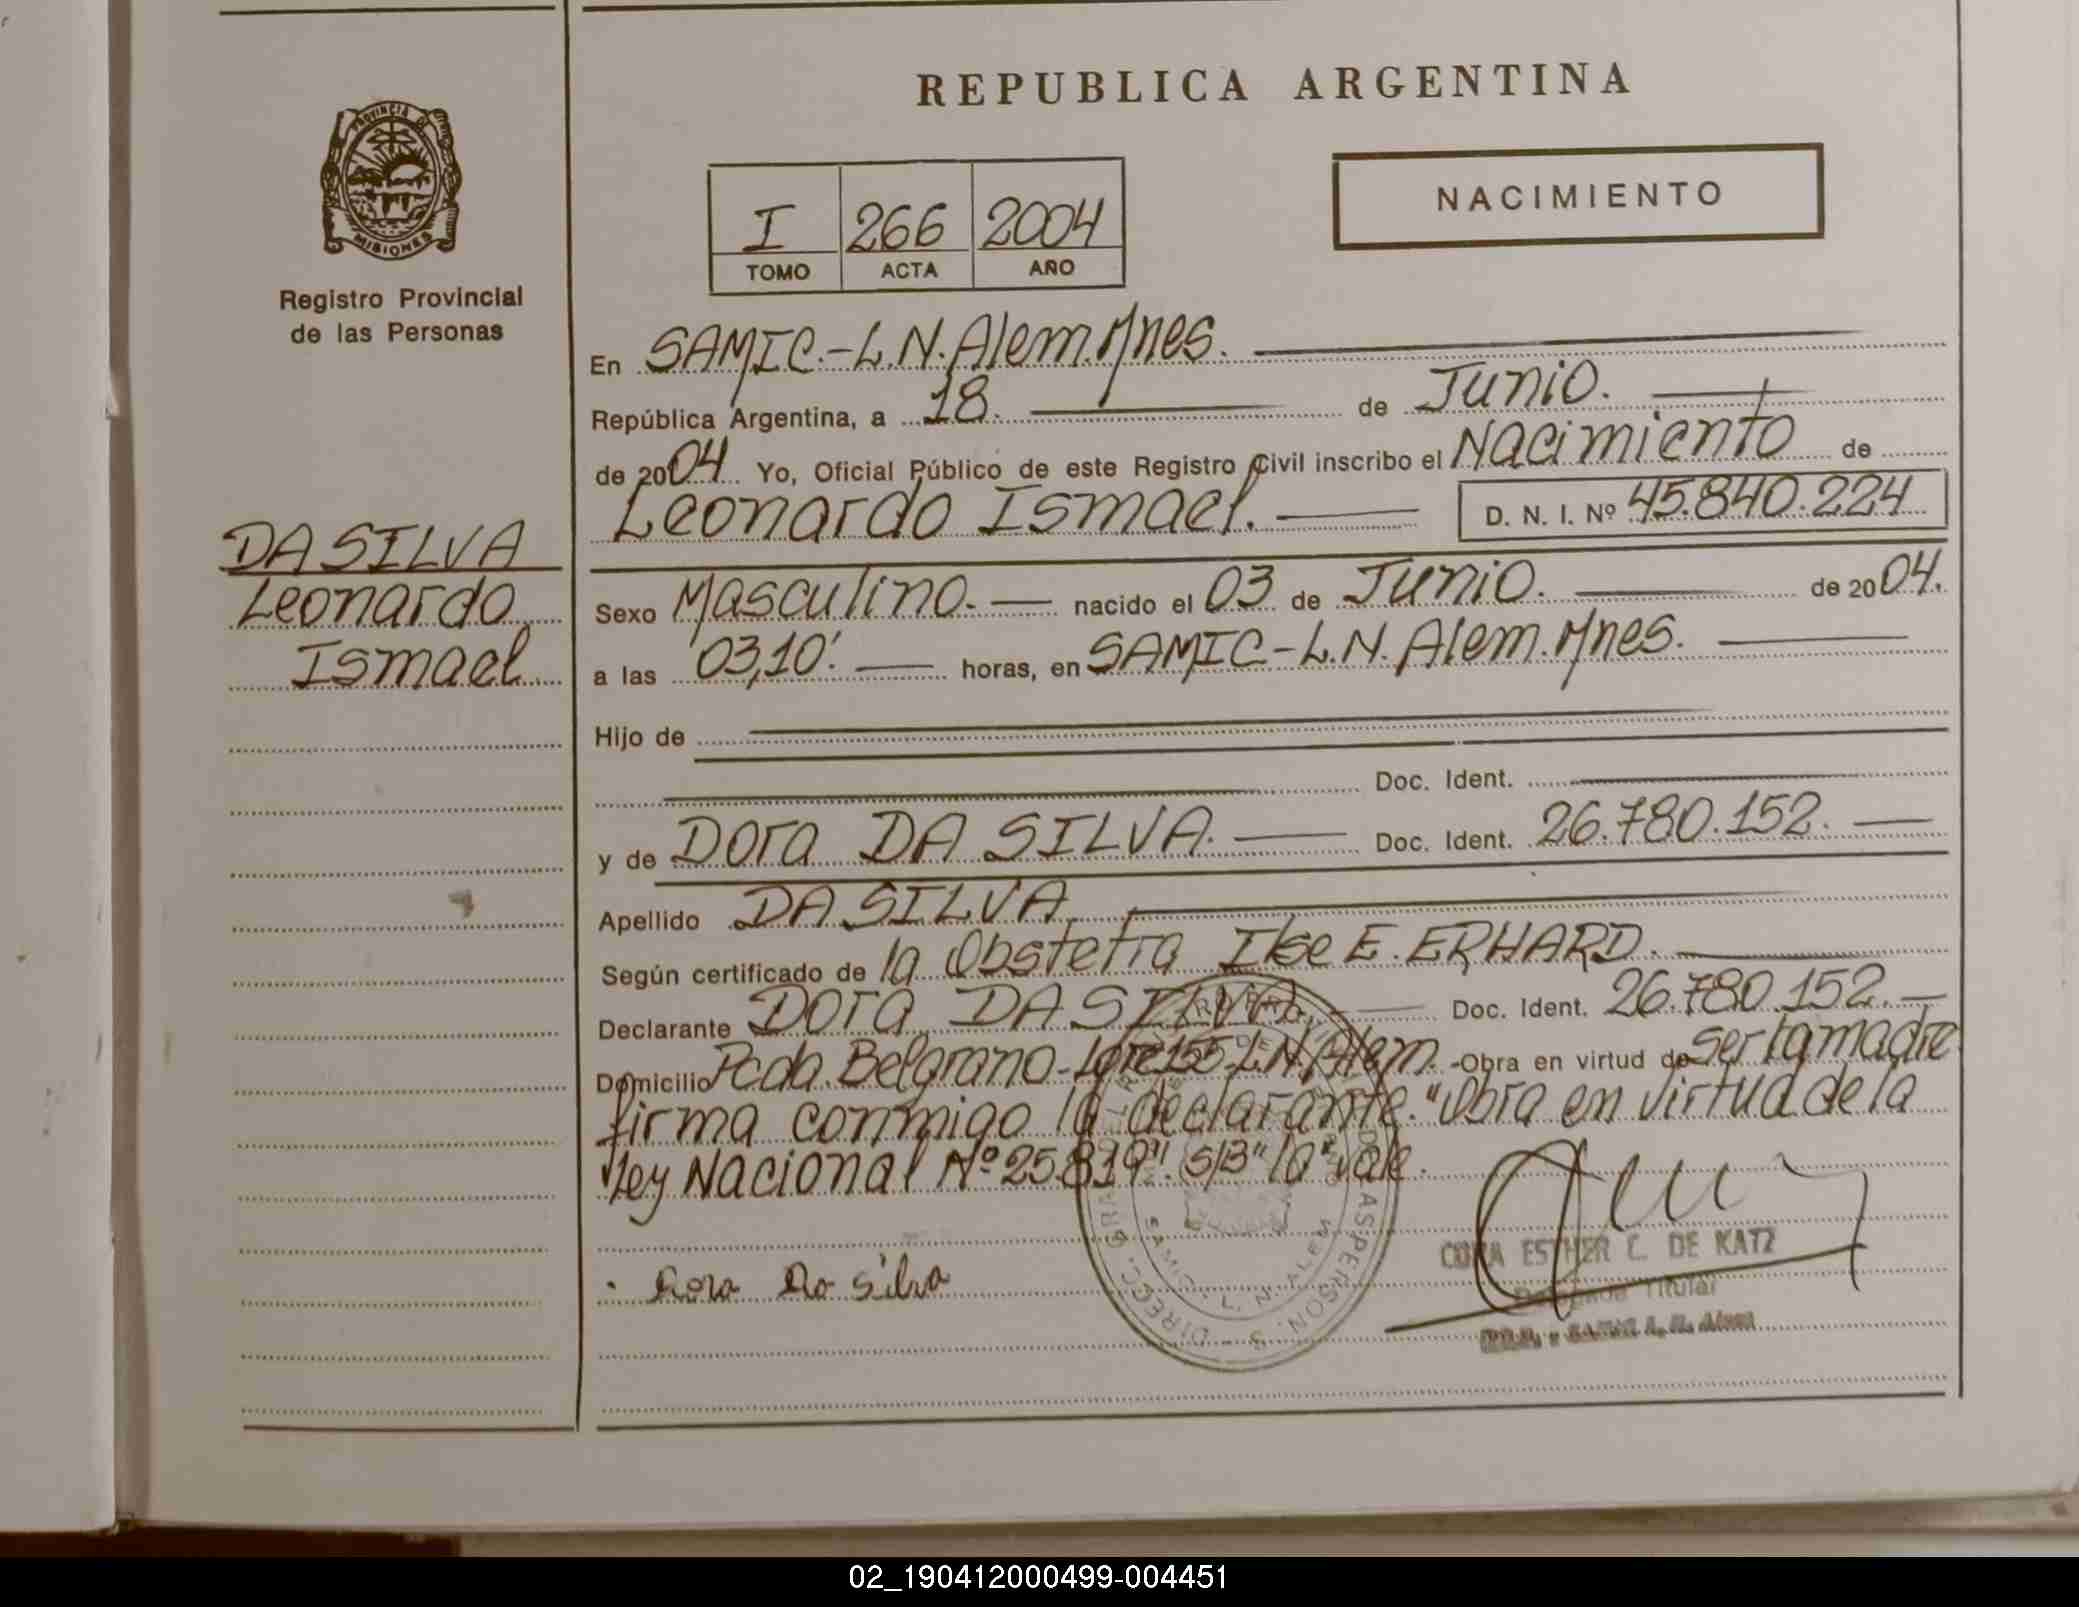 REPUBLICA ARGENTINA
PROVINCIA DE
MISIONES
Registro Provincial
de las Personas
I 266 2004
TOMO ACTA AÑO
NACIMIENTO
En SAMIC.-L.N.Alem.Mnes.
República Argentina, a 18. de Junio.
de 2004 Yo, Oficial Público de este Registro Civil inscribo el Nacimiento de
Leonardo Ismael. D. N. I. Nº 45.840.224
DA SILVA
Leonardo
Ismael
Sexo Masculino. nacido el 03 de Junio. de 2004.
a las 03,10'. horas, en SAMIC-L.N.Alem.Mnes.
Hijo de
Doc. Ident.
y de Dora DA SILVA. Doc. Ident. 26.780.152.
Apellido DA SILVA
Según certificado de la Obstetra Ilse E. ERHARD.
Declarante Dora DA SILVA. Doc. Ident. 26.780.152.
Domicilio Pcda. Belgrano-Lote 155-L.N.Alem. -Obra en virtud de ser la madre
firma conmigo la declarante. "Obra en virtud de la
Ley Nacional Nº 25.819". S/B "la" vale.
Dora Da Silva
CORA ESTHER C. DE KATZ
Titular
SAMIC. L. N. ALEM
02_190412000499-004451